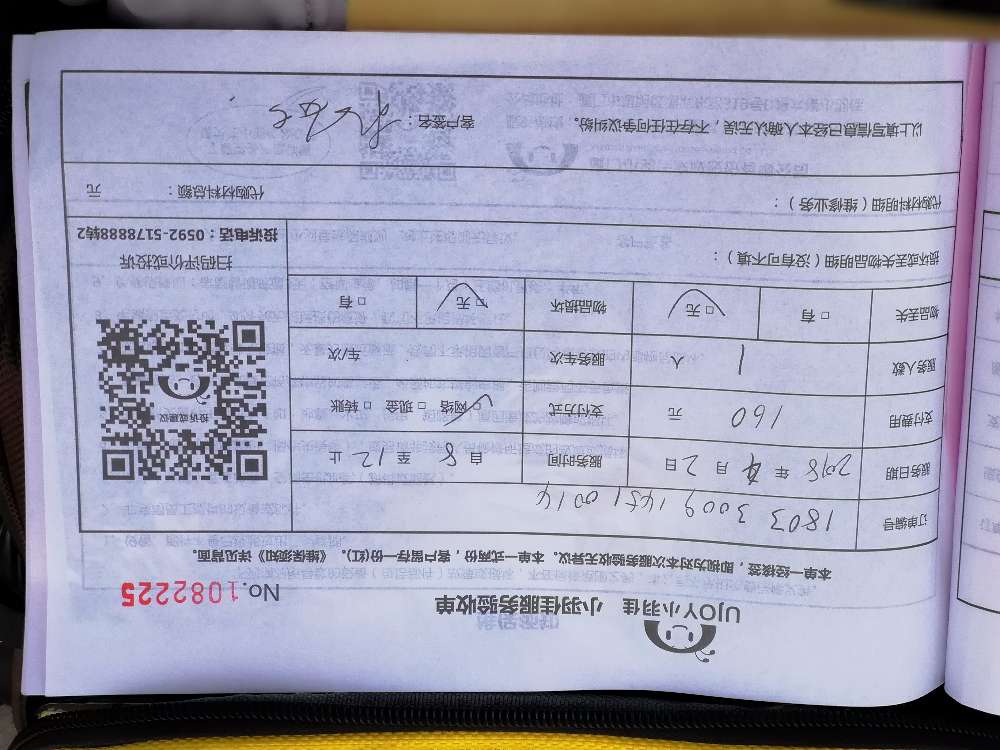 UJOY小羽佳 小羽佳服务验收单
No.1082225
本单一经接签，即视为对本次服务验收无异议。本单一式两份，客户留存一份(红)。《维保须知》详见背面。
订单编号 1803 3009 1451 0014
服务日期 2018 年 4 月 2 日 服务时间 自 8 至 12 止
支付费用 160 元 支付方式 □ 网络 □ 现金 □ 转账
服务人数 1 人 服务车次 车/次
物品丢失 □ 有 □ 无 物品损坏 □ 无 □ 有
投诉或建议
扫码评价或投诉
投诉电话：0592-5178888转2
损坏或丢失物品明细（没有可不填）：
代购材料明细（维修业务）： 代购材料总额： 元
以上填写信息已经本人确认无误，不存在任何争议纠纷。 客户签名：